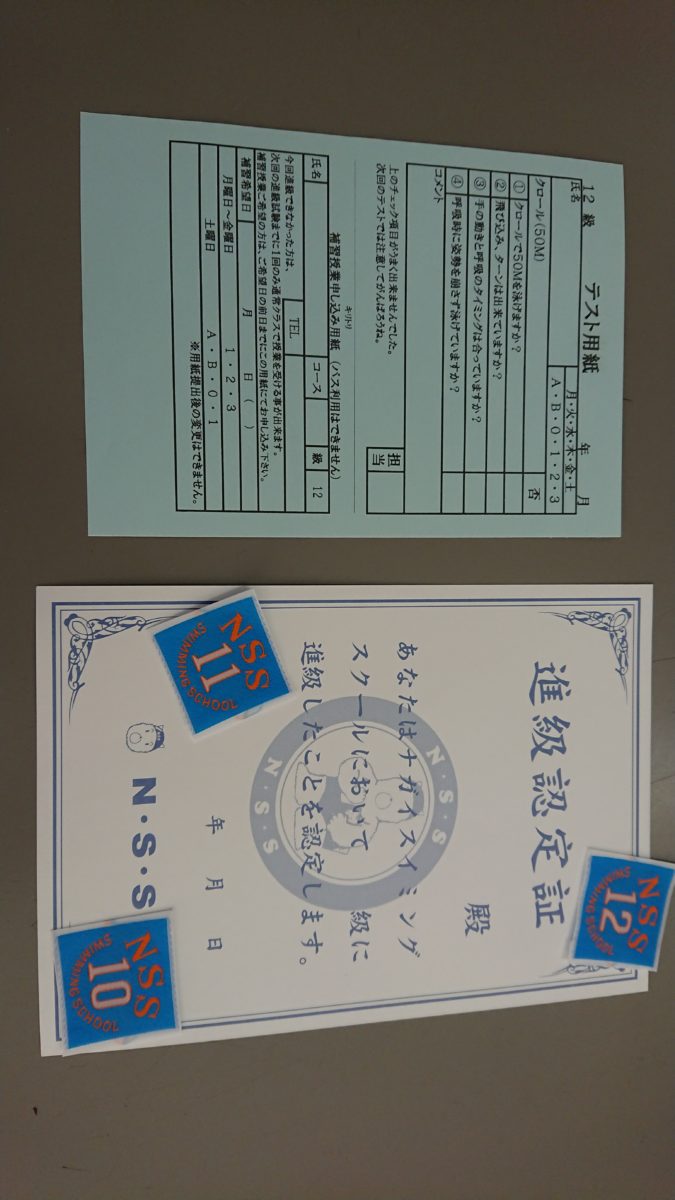 12 級 テスト用紙 年 月
氏名
月・火・水・木・金・土
A・B・0・1・2・3
クロール(50M) 否
① クロールで50Mを泳げますか?
② 飛び込み、ターンは出来ていますか?
③ 手の動きと呼吸のタイミングは合っていますか?
④ 呼吸時に姿勢を崩さず泳げていますか?
コメント
上のチェック項目がうまく出来ませんでした。
次回のテストでは注意してがんばろうね。
担当
キリトリ
補習授業申し込み用紙 (バス利用はできません)
氏名 コース 級 12
TEL
今回進級できなかった方は、
次回の進級試験までに1回のみ通常クラスで授業を受ける事が出来ます。
補習授業ご希望の方は、ご希望日の前日までにこの用紙にてお申し込み下さい。
補習希望日 月 日 ( )
月曜日〜金曜日 1・2・3
土曜日 A・B・0・1
※用紙提出後の変更はできません。
進級認定証
殿
あなたはナガイスイミング
スクールにおいて 級に
進級したことを認定します。
年 月 日
N・S・S
N・S・S
N・S・S
NSS
11
SWIMMING SCHOOL
NSS
12
SWIMMING SCHOOL
NSS
10
SWIMMING SCHOOL